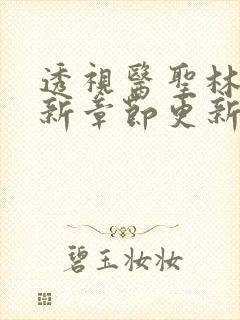 透視醫聖林
新章節更新
碧玉妆妆